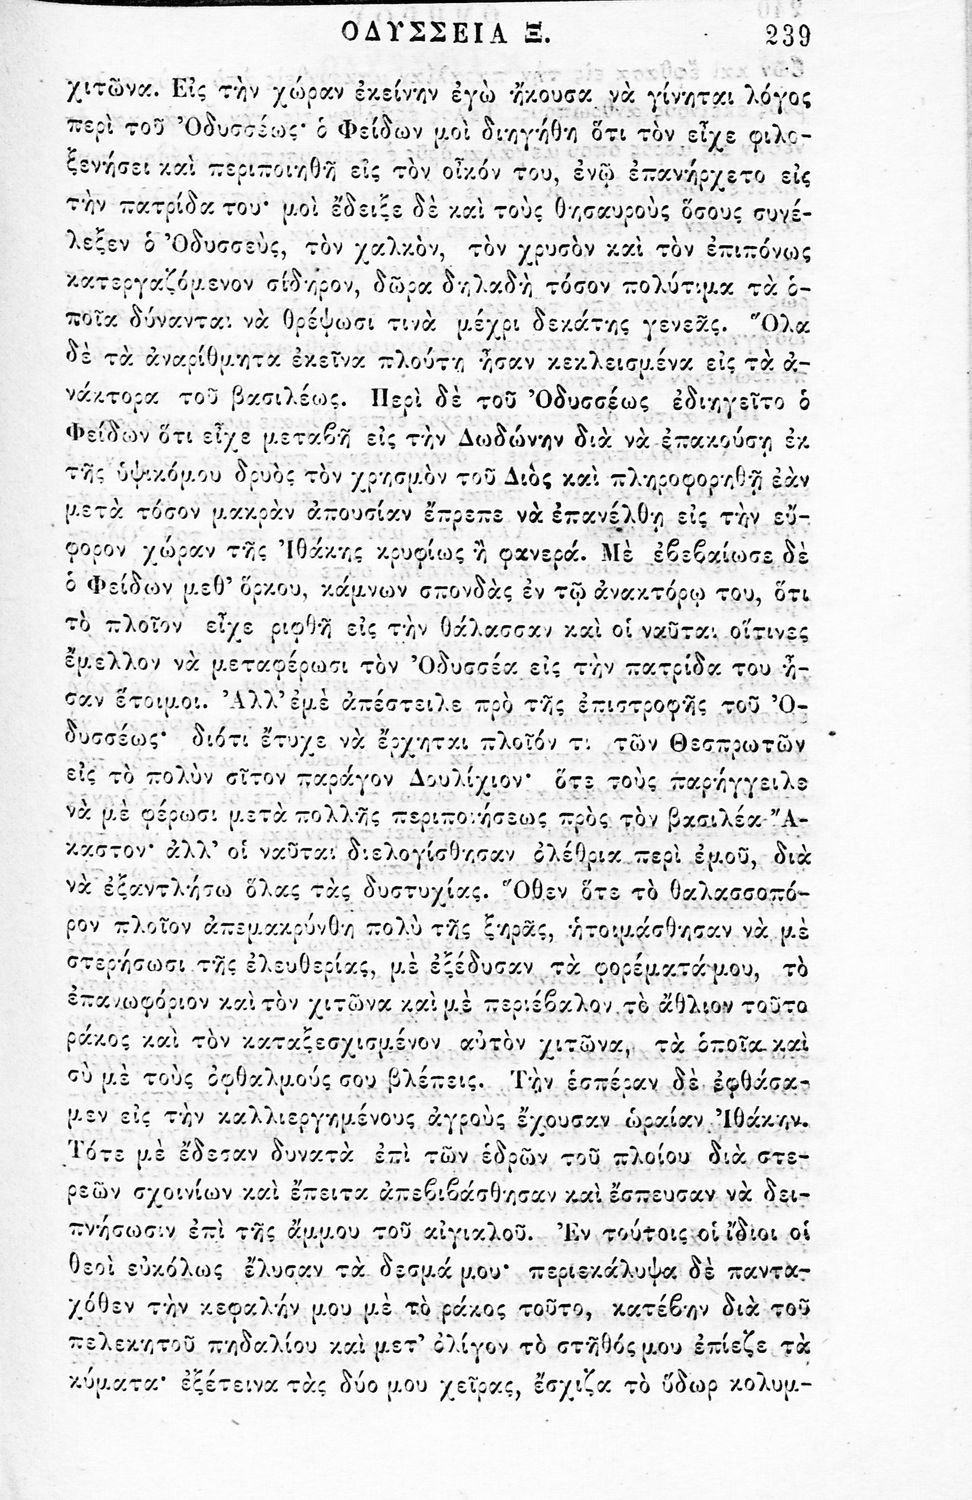 ΟΔΥΣΣΕΙΑ Ξ. 239
χιτῶνα. Εἰς τὴν χώραν ἐκείνην ἐγὼ ἤκουσα νὰ γίνηται λόγος
περὶ τοῦ Ὀδυσσέως· ὁ Φείδων μοὶ διηγήθη ὅτι τὸν εἶχε φιλο-
ξενήσει καὶ περιποιηθῆ εἰς τὸν οἶκόν του, ἐνῷ ἐπανήρχετο εἰς
τὴν πατρίδα του· μοὶ ἔδειξε δὲ καὶ τοὺς θησαυροὺς ὅσους συνέ-
λεξεν ὁ Ὀδυσσεὺς, τὸν χαλκὸν, τὸν χρυσὸν καὶ τὸν ἐπιπόνως
κατεργαζόμενον σίδηρον, δῶρα δηλαδὴ τόσον πολύτιμα τὰ ὁ-
ποῖα δύνανται νὰ θρέψωσι τινὰ μέχρι δεκάτης γενεᾶς. Ὅλα
δὲ τὰ ἀναρίθμητα ἐκεῖνα πλούτη ἦσαν κεκλεισμένα εἰς τὰ ἀ-
νάκτορα τοῦ βασιλέως. Περὶ δὲ τοῦ Ὀδυσσέως ἐδιηγεῖτο ὁ
Φείδων ὅτι εἶχε μεταβῆ εἰς τὴν Δωδώνην διὰ νὰ ἐπακούσῃ ἐκ
τῆς ὑψικόμου δρυὸς τὸν χρησμὸν τοῦ Διὸς καὶ πληροφορηθῇ ἐὰν
μετὰ τόσον μακρὰν ἀπουσίαν ἔπρεπε νὰ ἐπανέλθῃ εἰς τὴν εὔ-
φορον χώραν τῆς Ἰθάκης κρυφίως ἢ φανερά. Μὲ ἐβεβαίωσε δὲ
ὁ Φείδων μεθ' ὅρκου, κάμνων σπονδὰς ἐν τῷ ἀνακτόρῳ του, ὅτι
τὸ πλοῖον εἶχε ριφθῆ εἰς τὴν θάλασσαν καὶ οἱ ναῦται οἵτινες
ἔμελλον νὰ μεταφέρωσι τὸν Ὀδυσσέα εἰς τὴν πατρίδα του ἦ-
σαν ἕτοιμοι. Ἀλλ' ἐμὲ ἀπέστειλε πρὸ τῆς ἐπιστροφῆς τοῦ Ὀ-
δυσσέως· διότι ἔτυχε νὰ ἔρχηται πλοῖόν τι τῶν Θεσπρωτῶν
εἰς τὸ πολὺν σῖτον παράγον Δουλίχιον· ὅτε τοὺς παρήγγειλε
νὰ μὲ φέρωσι μετὰ πολλῆς περιποιήσεως πρὸς τὸν βασιλέα Ἄ-
καστον· ἀλλ' οἱ ναῦται διελογίσθησαν ὀλέθρια περὶ ἐμοῦ, διὰ
νὰ ἐξαντλήσω ὅλας τὰς δυστυχίας. Ὅθεν ὅτε τὸ θαλασσοπό-
ρον πλοῖον ἀπεμακρύνθη πολὺ τῆς ξηρᾶς, ἡτοιμάσθησαν νὰ μὲ
στερήσωσι τῆς ἐλευθερίας, μὲ ἐξέδυσαν τὰ φορέματά μου, τὸ
ἐπανωφόριον καὶ τὸν χιτῶνα καὶ μὲ περιέβαλον τὸ ἄθλιον τοῦτο
ράκος καὶ τὸν καταξεσχισμένον αὐτὸν χιτῶνα, τὰ ὁποῖα καὶ
σὺ μὲ τοὺς ὀφθαλμούς σου βλέπεις. Τὴν ἑσπέραν δὲ ἐφθάσα-
μεν εἰς τὴν καλλιεργημένους ἀγροὺς ἔχουσαν ὡραίαν Ἰθάκην.
Τότε μὲ ἔδεσαν δυνατὰ ἐπὶ τῶν ἑδρῶν τοῦ πλοίου διὰ στε-
ρεῶν σχοινίων καὶ ἔπειτα ἀπεβιβάσθησαν καὶ ἔσπευσαν νὰ δει-
πνήσωσιν ἐπὶ τῆς ἄμμου τοῦ αἰγιαλοῦ. Ἐν τούτοις οἱ ἴδιοι οἱ
θεοὶ εὐκόλως ἔλυσαν τὰ δεσμά μου· περιεκάλυψα δὲ παντα-
χόθεν τὴν κεφαλήν μου μὲ τὸ ράκος τοῦτο, κατέβην διὰ τοῦ
πελεκητοῦ πηδαλίου καὶ μετ' ὀλίγον τὸ στῆθός μου ἐπίεζε τὰ
κύματα· ἐξέτεινα τὰς δύο μου χεῖρας, ἔσχιζα τὸ ὕδωρ κολυμ-